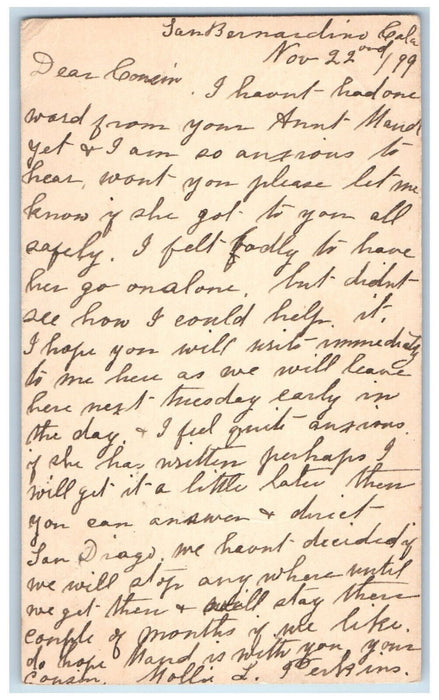 San Bernardino Cala
Nov 22nd/99
Dear Cousin. I havnt had one
word from your Aunt Maud
yet & I am so anxious to
hear, wont you please let me
know if she got to you all
safely. I felt badly to have
her go on alone, but didnt
see how I could help it.
I hope you will write immediately
to me here as we will leave
here next tuesday early in
the day, & I feel quite anxious.
if she has written perhaps I
will get it a little later then
you can answer & direct
San Diago. we havnt decided if
we will stop any where until
we get there & will stay there
couple of months if we like.
do hope Maud is with you your
Cousin. Mollie L. Perkins.